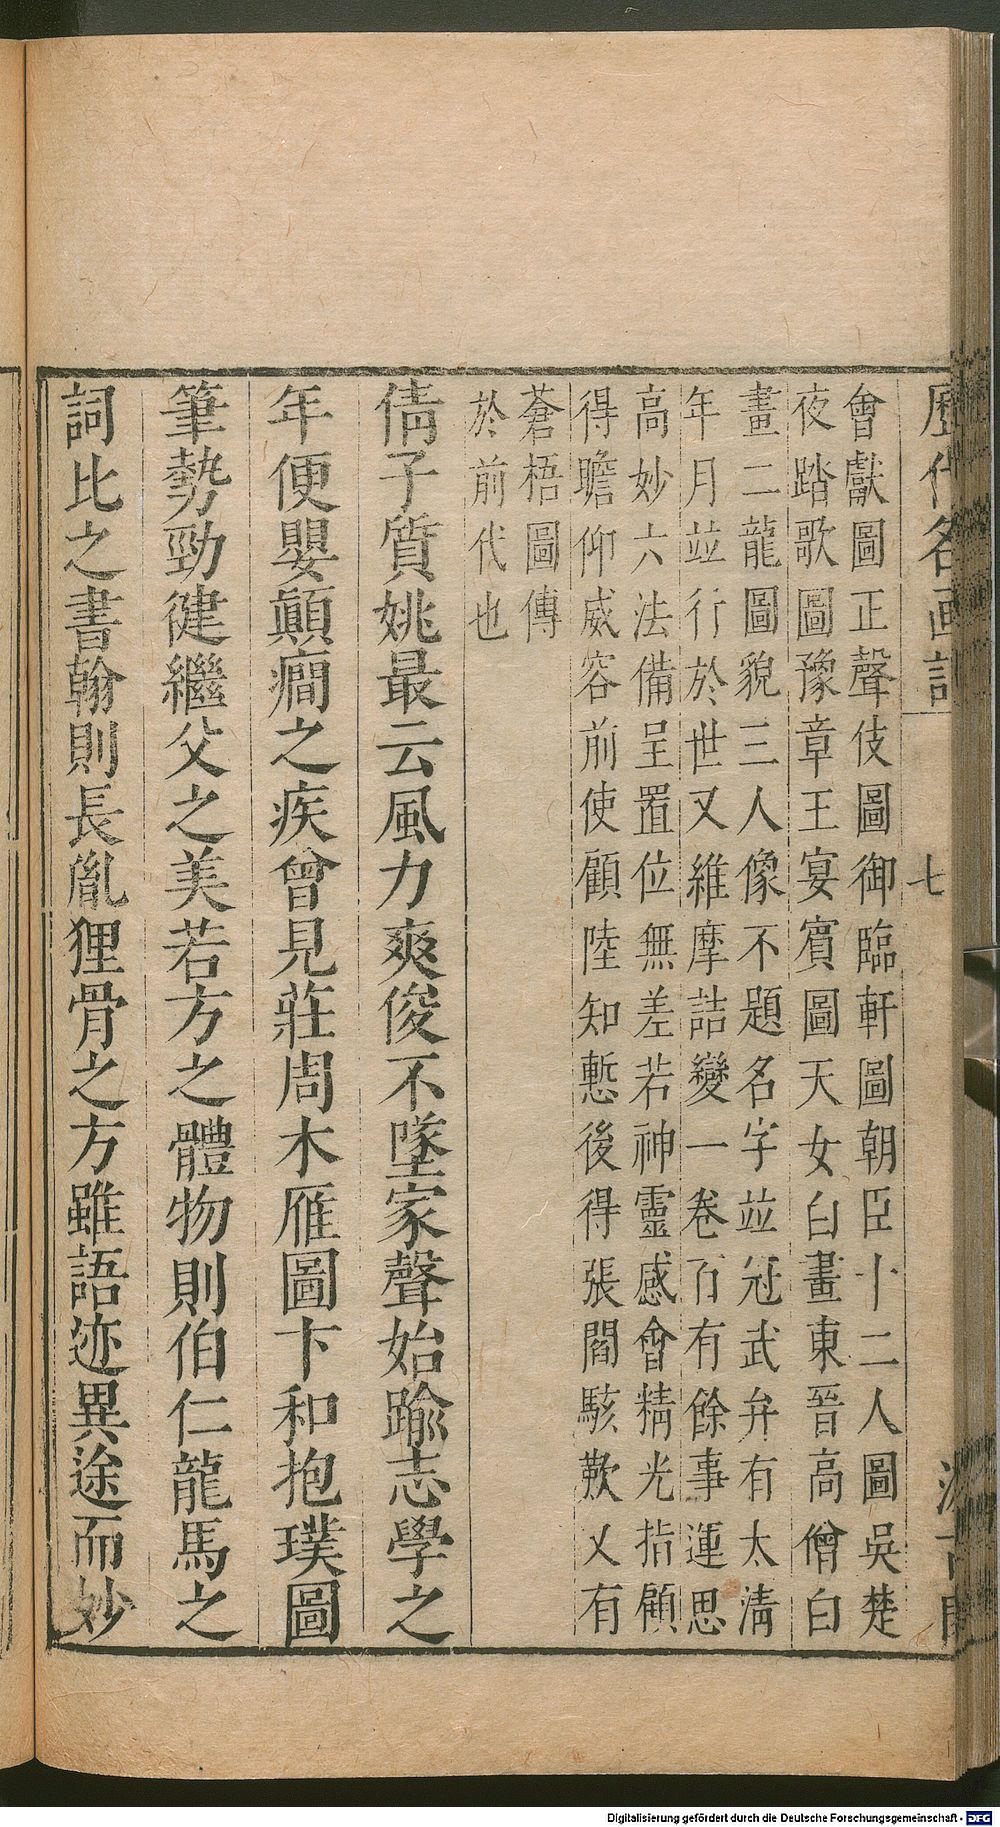 歷代名画記 七 汲古閣
會獻圖正聲伎圖御臨軒圖朝臣十二人圖吳楚
夜踏歌圖豫章王宴賓圖天女白畫東晉高僧白
畫二龍圖貌三人像不題名字並冠武弁有太清
年月並行於世又維摩詰變一卷百有餘事運思
高妙六法備呈置位無差若神靈感會精光指顧
得瞻仰威容前使顧陸知慙後得張閻駭歎又有
蒼梧圖傳
於前代也
倩子質姚最云風力爽俊不墜家聲始踰志學之
年便嬰顛癇之疾曾見莊周木雁圖卞和抱璞圖
筆勢勁健繼父之美若方之體物則伯仁龍馬之
詞比之書翰則長胤狸骨之方雖語迹異途而妙
Digitalisierung gefördert durch die Deutsche Forschungsgemeinschaft - DFG